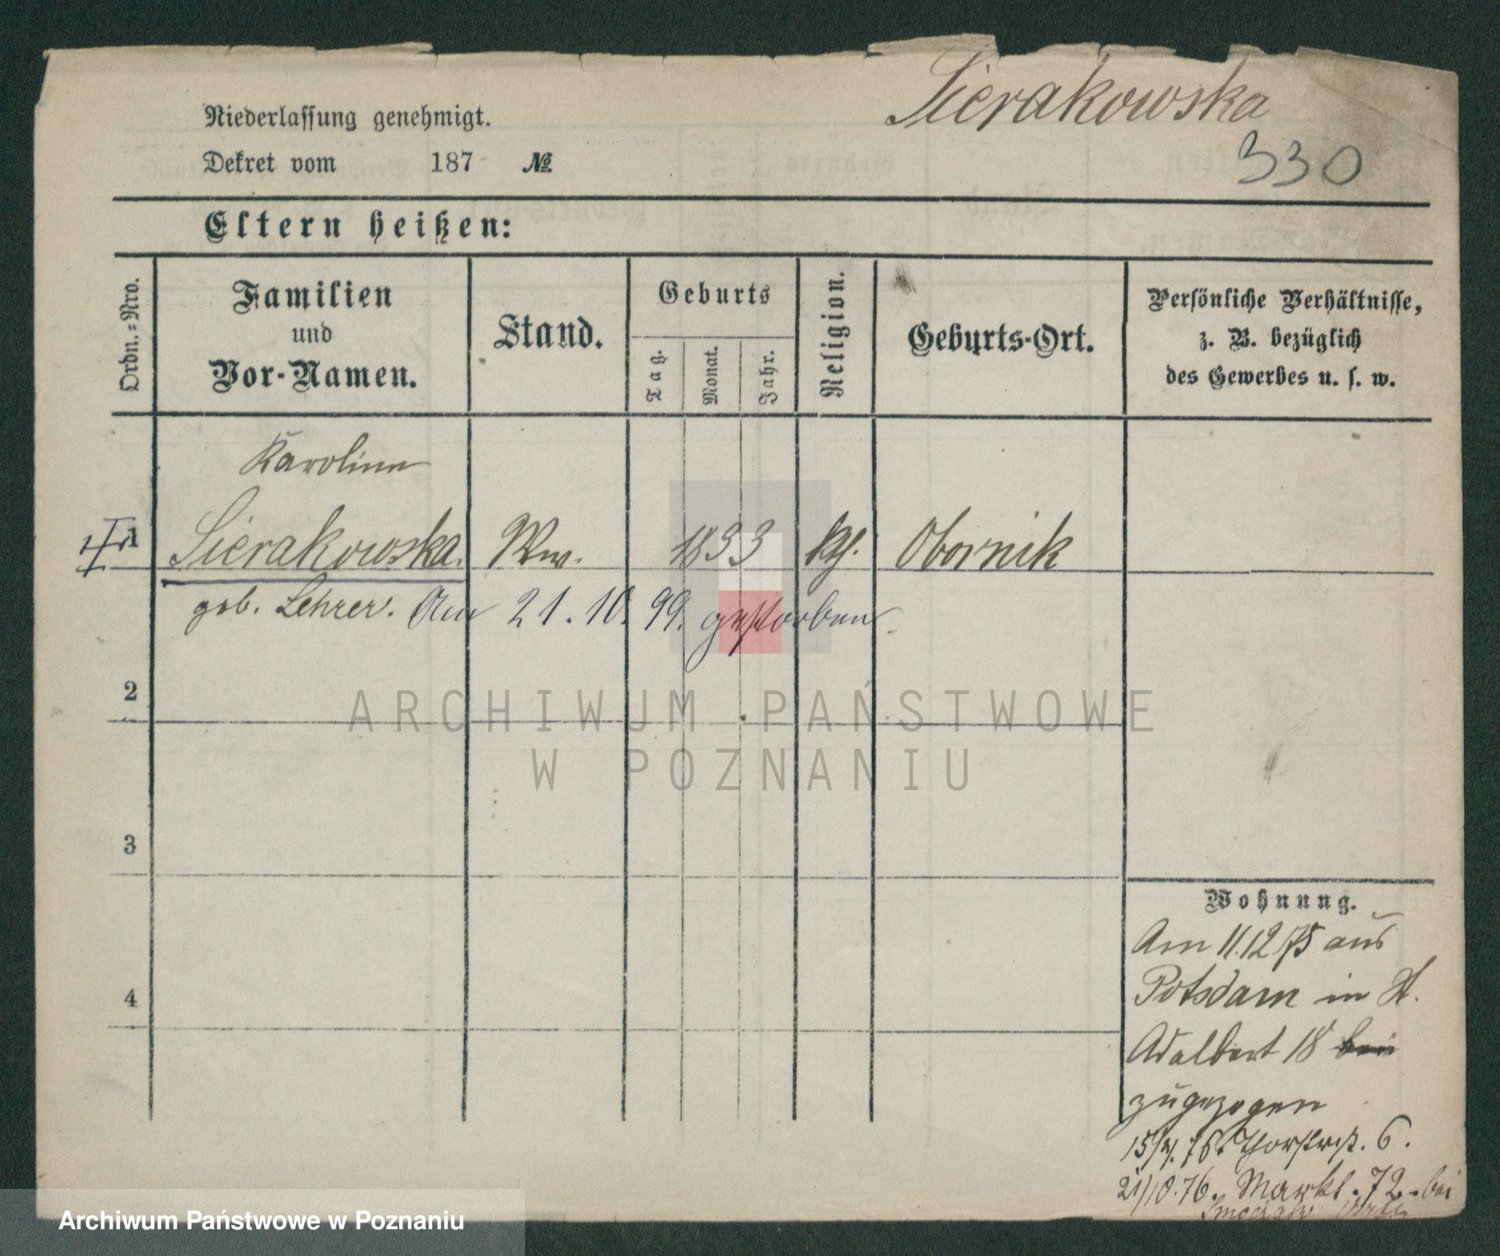 Sierakowska
Niederlassung genehmigt.
330
Dekret vom 187 №
Eltern heißen:
Ordn.=Nro.
Familien
und
Vor-Namen.
Stand.
Geburts
Tag.
Monat.
Jahr.
Religion.
Geburts-Ort.
Persönliche Verhältnisse,
z. B. bezüglich
des Gewerbes u. s. w.
Karoline
1 Sierakowska. Ww. 1833 kth. Obornik
geb. Lehrer. Am 21. 10. 99. gestorben.
2
ARCHIWUM PAŃSTWOWE
W POZNANIU
3
4
Wohnung.
Am 11.12 75 aus
Potsdam in St.
Adalbert 18 bei
zugezogen
15/4. 76. 6.
21/10.76. Markt. 72. bei
Archiwum Państwowe w Poznaniu